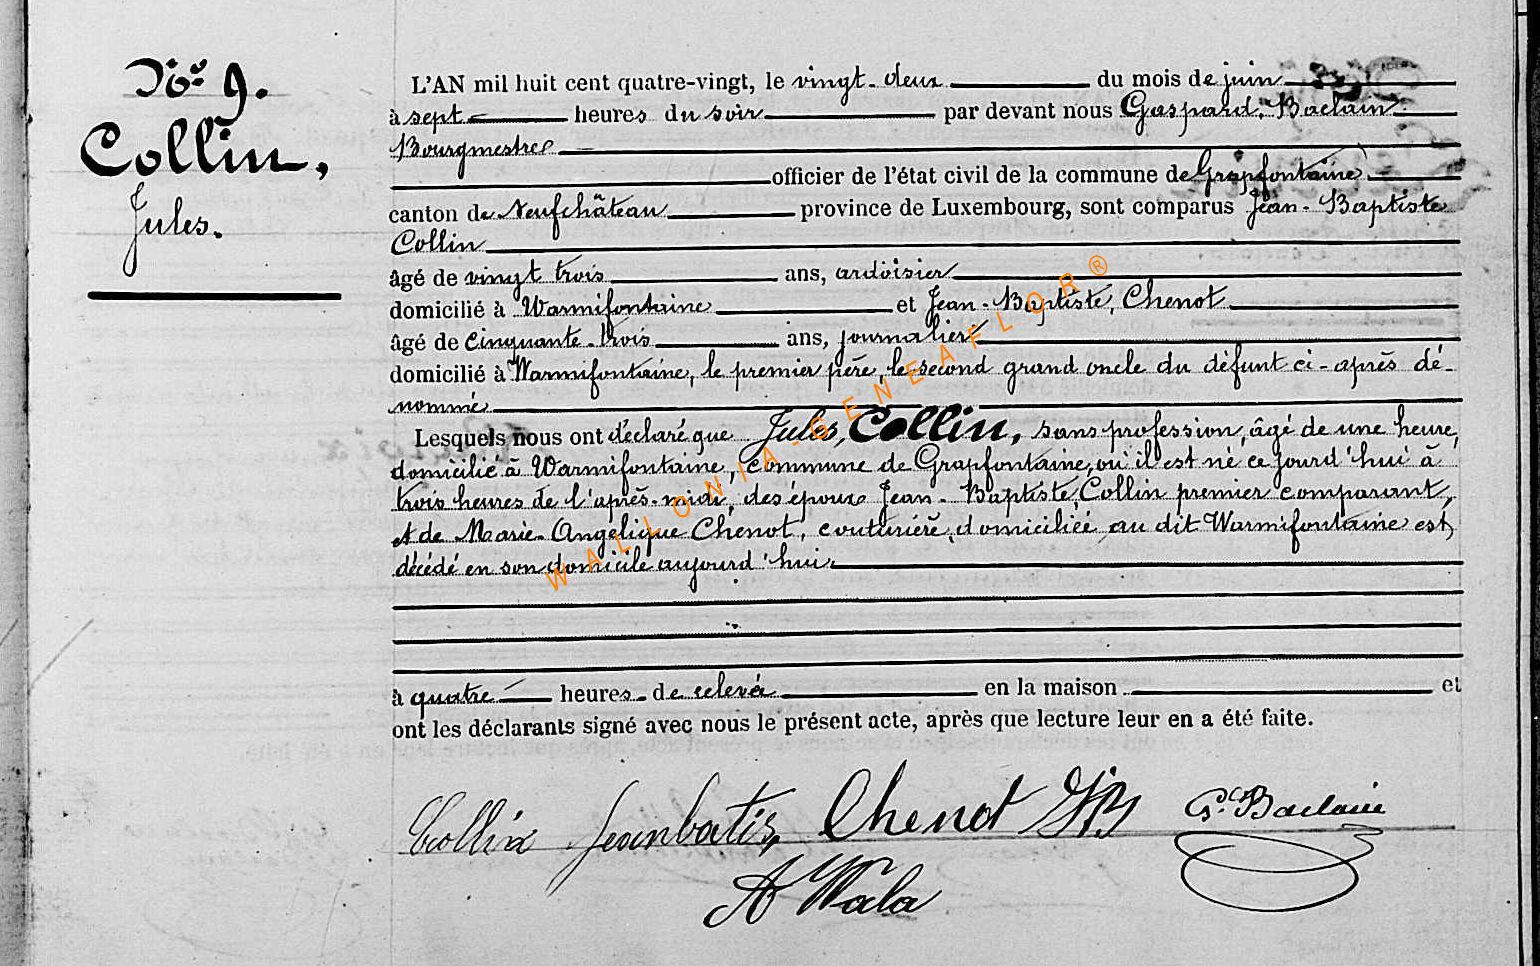 No 9.
Collin,
Jules.
L'AN mil huit cent quatre-vingt, le vingt-deux du mois de juin
à sept heures du soir par devant nous Gaspard, Baclain
Bourgmestre
officier de l'état civil de la commune de Grapfontaine
canton de Neufchâteau province de Luxembourg, sont comparus Jean-Baptiste
Collin
âgé de vingt trois ans, ardoisier
domicilié à Warmifontaine et Jean-Baptiste, Chenot
âgé de cinquante-trois ans, journalier
domicilié à Warmifontaine, le premier père, le second grand oncle du défunt ci-après dé-
nommé
Lesquels nous ont déclaré que Jules, Collin, sans profession, âgé de une heure,
domicilié à Warmifontaine, commune de Grapfontaine, où il est né ce jourd'hui à
trois heures de l'après-midi, des époux Jean-Baptiste, Collin premier comparant,
et de Marie-Angélique Chenot, couturière, domiciliée au dit Warmifontaine est
décédé en son domicile aujourd'hui
à quatre heures de relevée en la maison et
ont les déclarants signé avec nous le présent acte, après que lecture leur en a été faite.
Collin Jeanbatis, Chenot JB G. Baclain
A Wala
WALLONIA-GENEAFLOR®